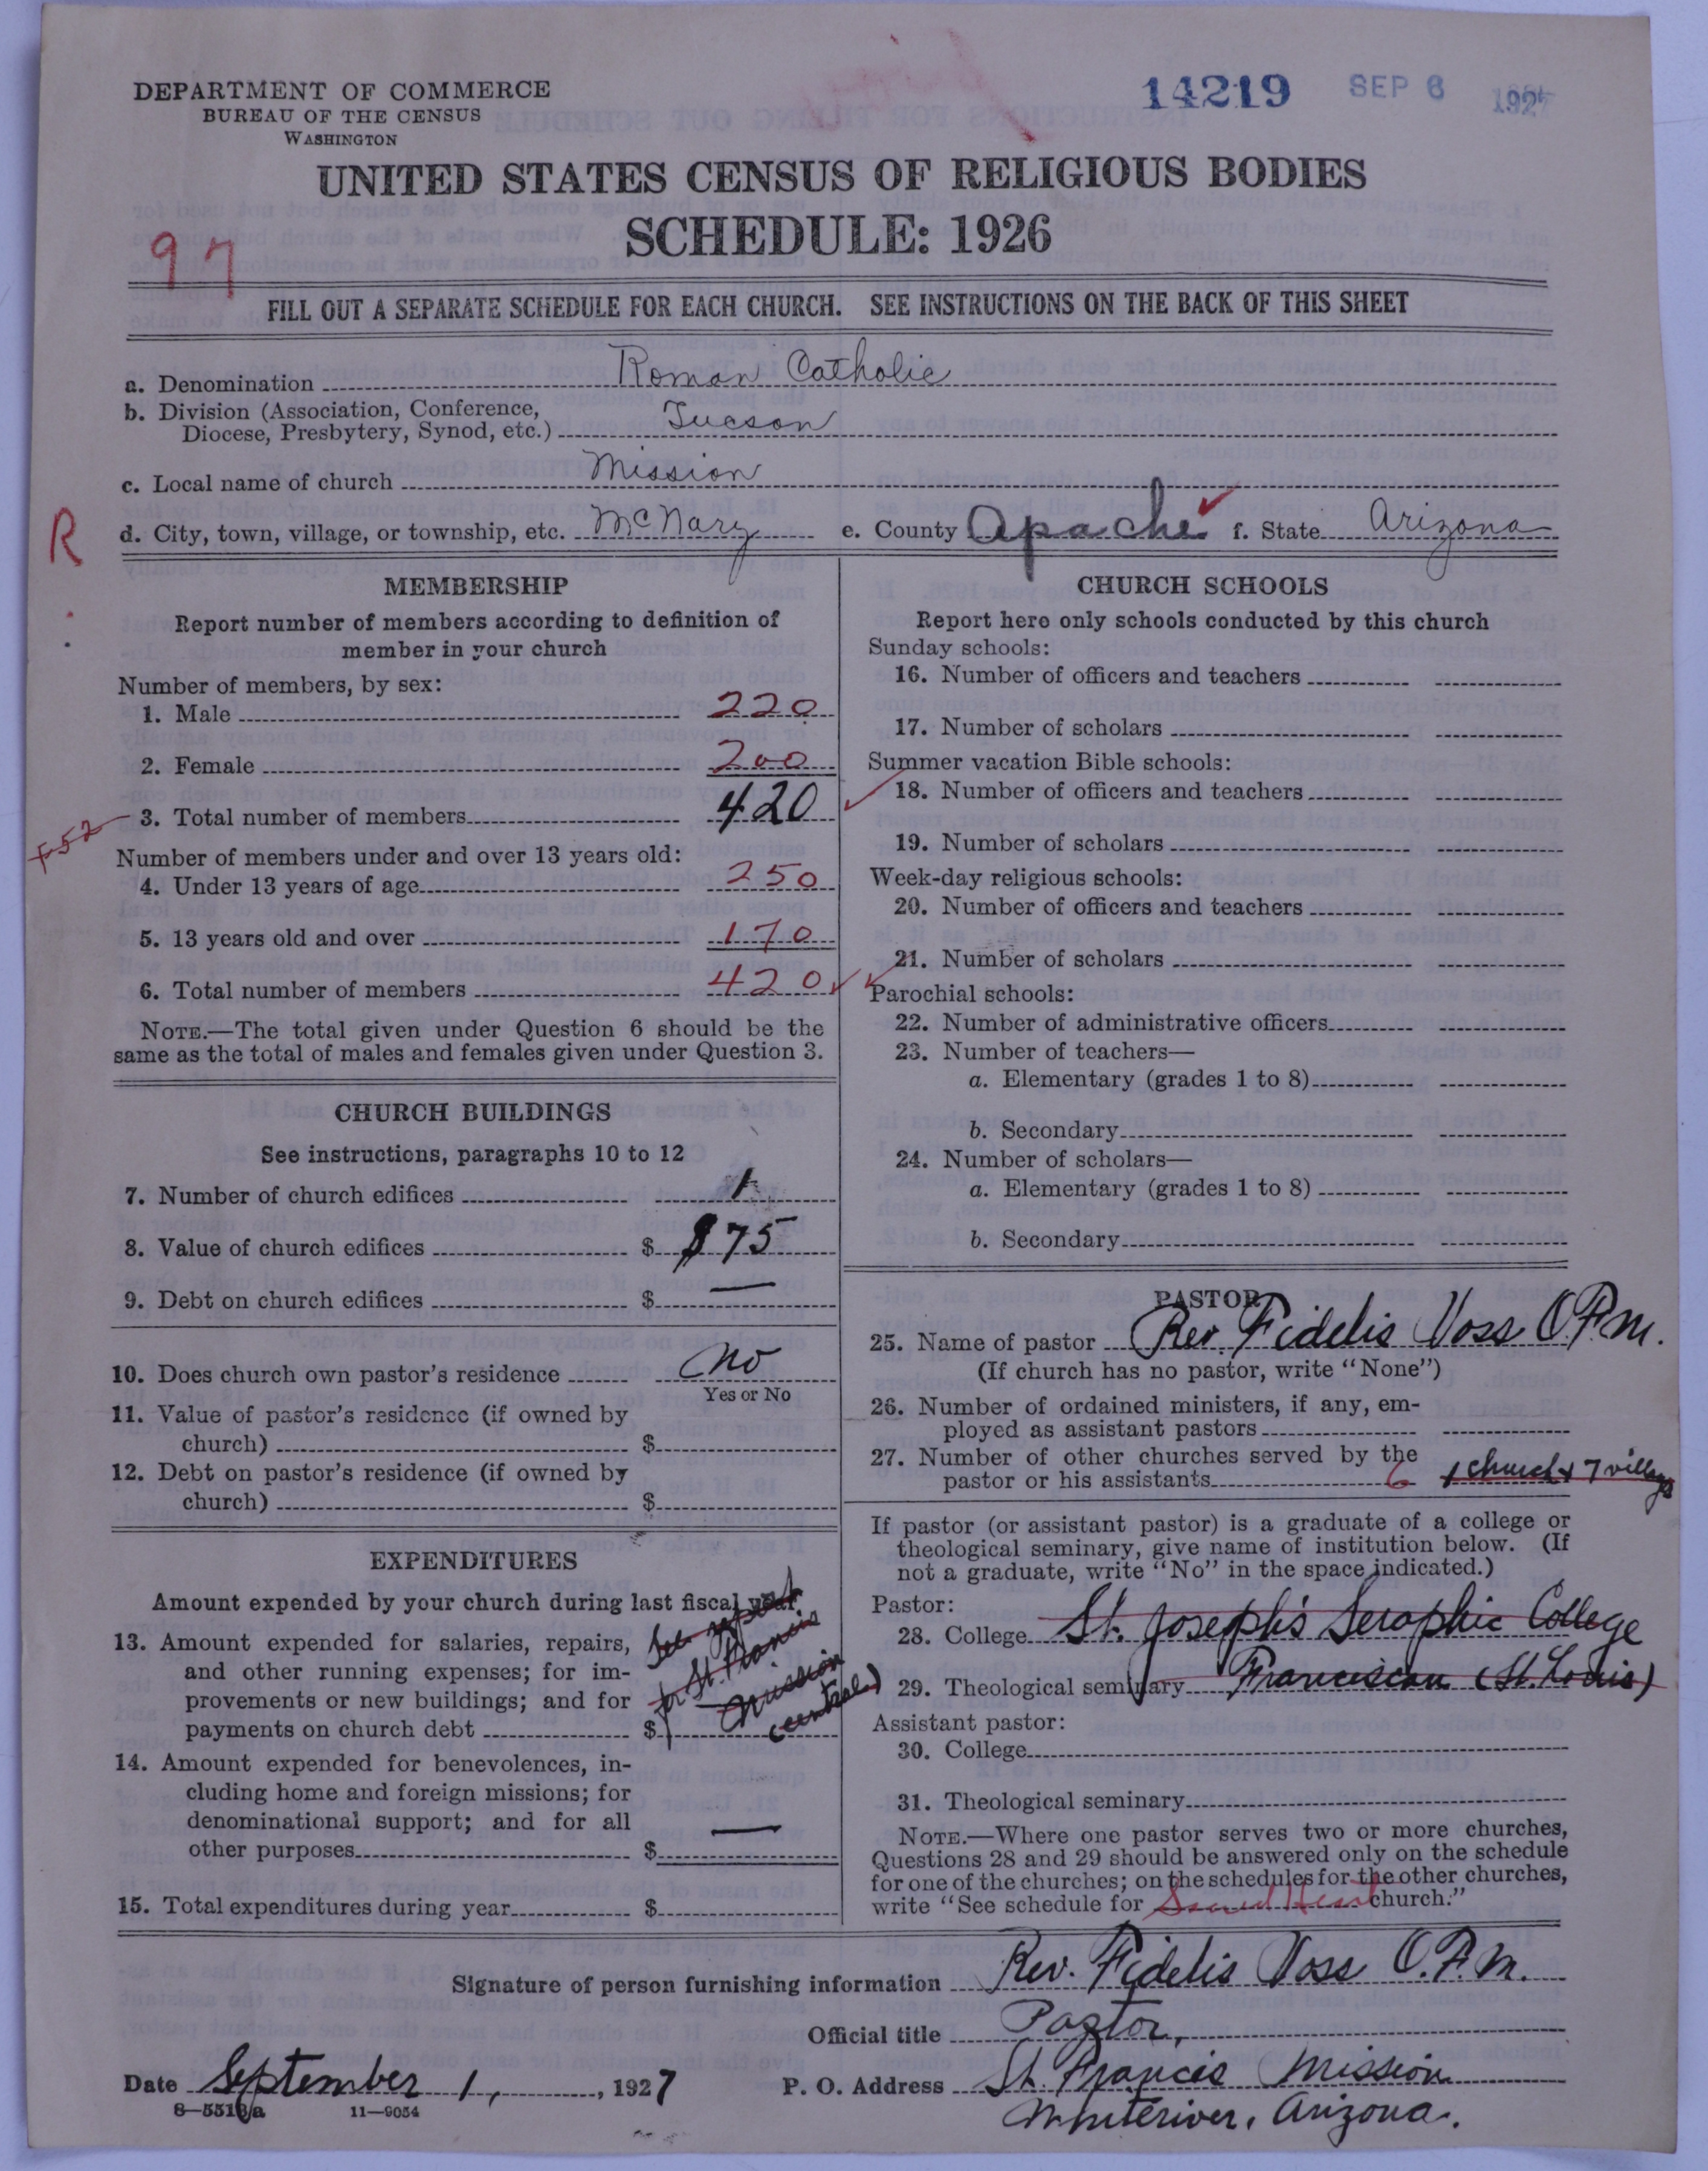 DEPARTMENT OF COMMERCE
BUREAU OF THE CENSUS
WASHINGTON
14219 SEP 6 192
UNITED STATES CENSUS OF RELIGIOUS BODIES
SCHEDULE: 1926
97
FILL OUT A SEPARATE SCHEDULE FOR EACH CHURCH. SEE INSTRUCTIONS ON THE BACK OF THIS SHEET
a. Denomination Roman Catholic
b. Division (Association, Conference,
Diocese, Presbytery, Synod, etc.) Tucson
c. Local name of church Mission
R
d. City, town, village, or township, etc. McNary e. County Apache f. State Arizona
MEMBERSHIP
Report number of members according to definition of
member in your church
Number of members, by sex:
1. Male 220
2. Female 200
3. Total number of members 420
Number of members under and over 13 years old:
4. Under 13 years of age 250
5. 13 years old and over 170
6. Total number of members 420
NOTE.—The total given under Question 6 should be the
same as the total of males and females given under Question 3.
CHURCH BUILDINGS
See instructions, paragraphs 10 to 12
7. Number of church edifices 1
8. Value of church edifices $ $75
9. Debt on church edifices $ —
10. Does church own pastor's residence no
Yes or No
11. Value of pastor's residence (if owned by
church) $
12. Debt on pastor's residence (if owned by
church) $
EXPENDITURES
Amount expended by your church during last fiscal year
13. Amount expended for salaries, repairs,
and other running expenses; for im-
provements or new buildings; and for
payments on church debt $
See report
for St. Francis
Mission
(central)
14. Amount expended for benevolences, in-
cluding home and foreign missions; for
denominational support; and for all
other purposes $ —
15. Total expenditures during year $
CHURCH SCHOOLS
Report here only schools conducted by this church
Sunday schools:
16. Number of officers and teachers
17. Number of scholars
Summer vacation Bible schools:
18. Number of officers and teachers
19. Number of scholars
Week-day religious schools:
20. Number of officers and teachers
21. Number of scholars
Parochial schools:
22. Number of administrative officers
23. Number of teachers—
a. Elementary (grades 1 to 8)
b. Secondary
24. Number of scholars—
a. Elementary (grades 1 to 8)
b. Secondary
PASTOR
25. Name of pastor Rev. Fidelis Voss O.F.M.
(If church has no pastor, write "None")
26. Number of ordained ministers, if any, em-
ployed as assistant pastors
27. Number of other churches served by the
pastor or his assistants 6 1 church + 7 villages
If pastor (or assistant pastor) is a graduate of a college or
theological seminary, give name of institution below. (If
not a graduate, write "No" in the space indicated.)
Pastor:
28. College St. Joseph's Seraphic College
29. Theological seminary Franciscan (St. Louis)
Assistant pastor:
30. College
31. Theological seminary
NOTE.—Where one pastor serves two or more churches,
Questions 28 and 29 should be answered only on the schedule
for one of the churches; on the schedules for the other churches,
write "See schedule for Sacred Heart church."
Signature of person furnishing information Rev. Fidelis Voss O.F.M.
Official title Pastor,
Date September 1, 1927 P. O. Address St. Francis Mission
Whiteriver, Arizona.
8—5518a 11—9054